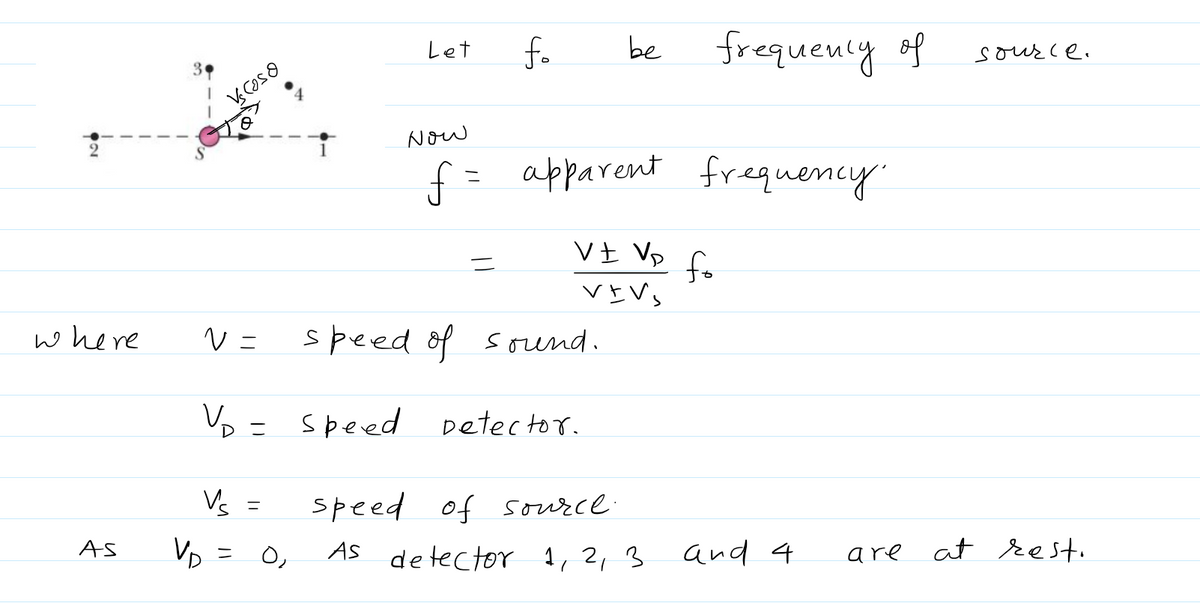 Let f₀ be frequency of source.
3
Vs cosθ
4
θ
2
S
1
Now
f = apparent frequency.
= V ± V_D / V ± V_s f₀
where V = speed of sound.
V_D = speed Detector.
V_s = speed of source.
As V_D = 0, As detector 1, 2, 3 and 4 are at rest.